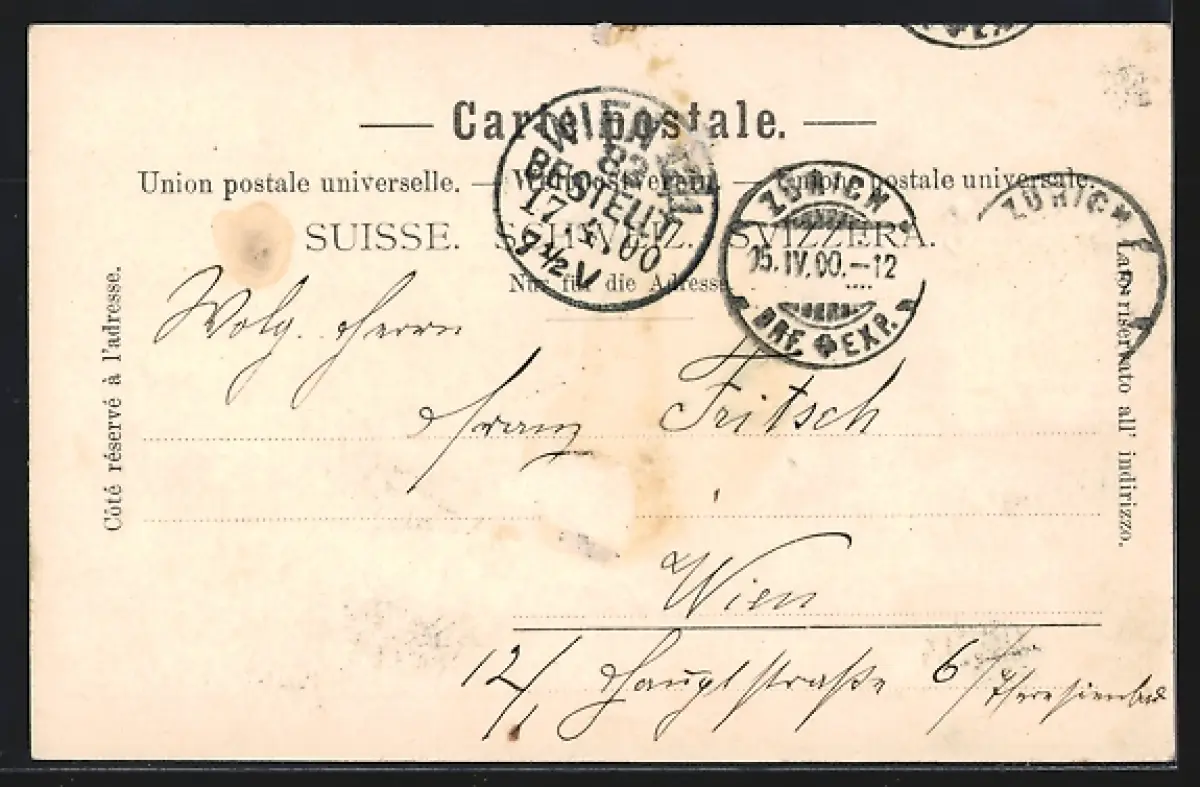 Carte postale.
Union postale universelle. — Weltpostverein. — Unione postale universale.
SUISSE. SCHWEIZ. SVIZZERA.
Nur für die Adresse.
Côté réservé à l'adresse.
Lato riservato all' indirizzo.
WIEN
82
BESTELLT
17. 4. 00
7½ V
ZÜRICH
05.IV.00.–12
BRF. EXP.
ZÜRICH
Wolg. Herrn
Franz Fritsch
Wien
12/1 Hauptstraße 6/ Theresienbad